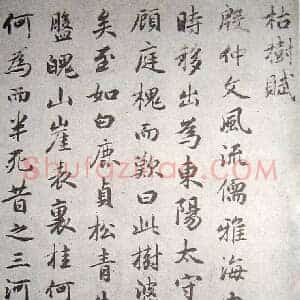 枯樹賦
殷仲文風流儒雅海
時移出為東陽太守
顧庭槐而歎曰此樹婆
矣至如白鹿貞松青
盤魄山崖表裏桂何
何為而半死昔之三河